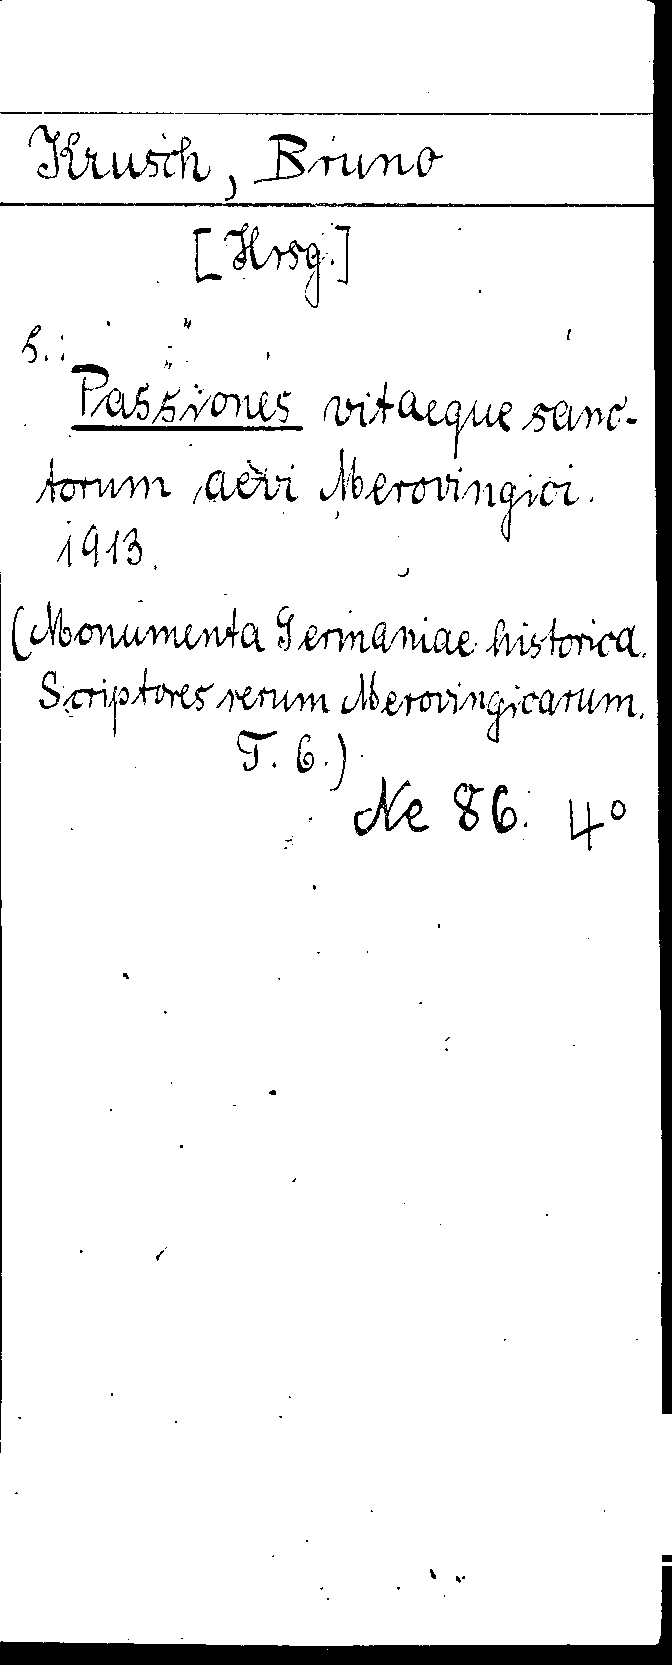 Krusch, Bruno
[Hrsg.]
s.:
Passiones vitaeque sanc-
torum aevi Merovingici.
1913.
(Monumenta Germaniae historica.
Scriptores rerum Merovingicarum.
T. 6.)
Ne 86. 4°